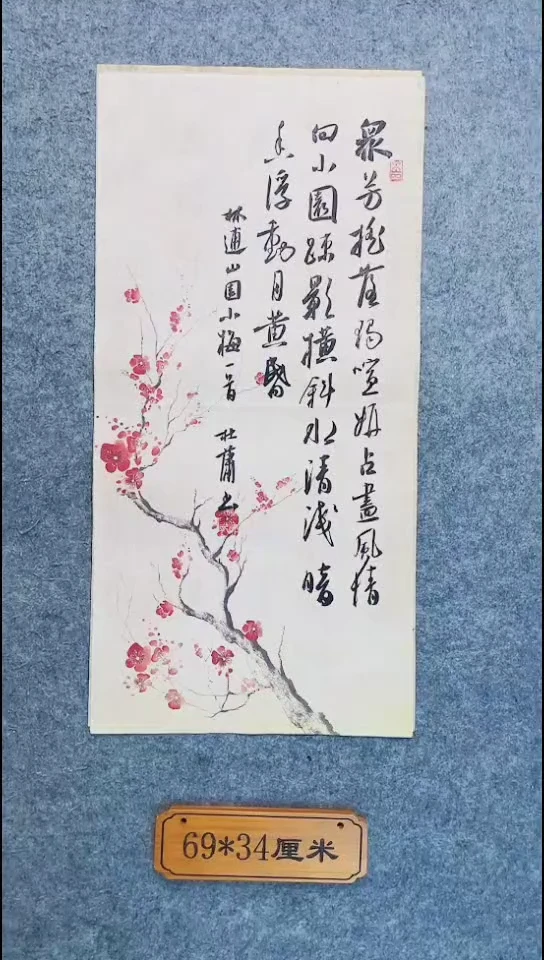 眾芳搖落獨喧妍占盡風情
向小園疎影橫斜水清淺暗
香浮動月黃昏
林逋山園小梅一首 杜书
69*34厘米